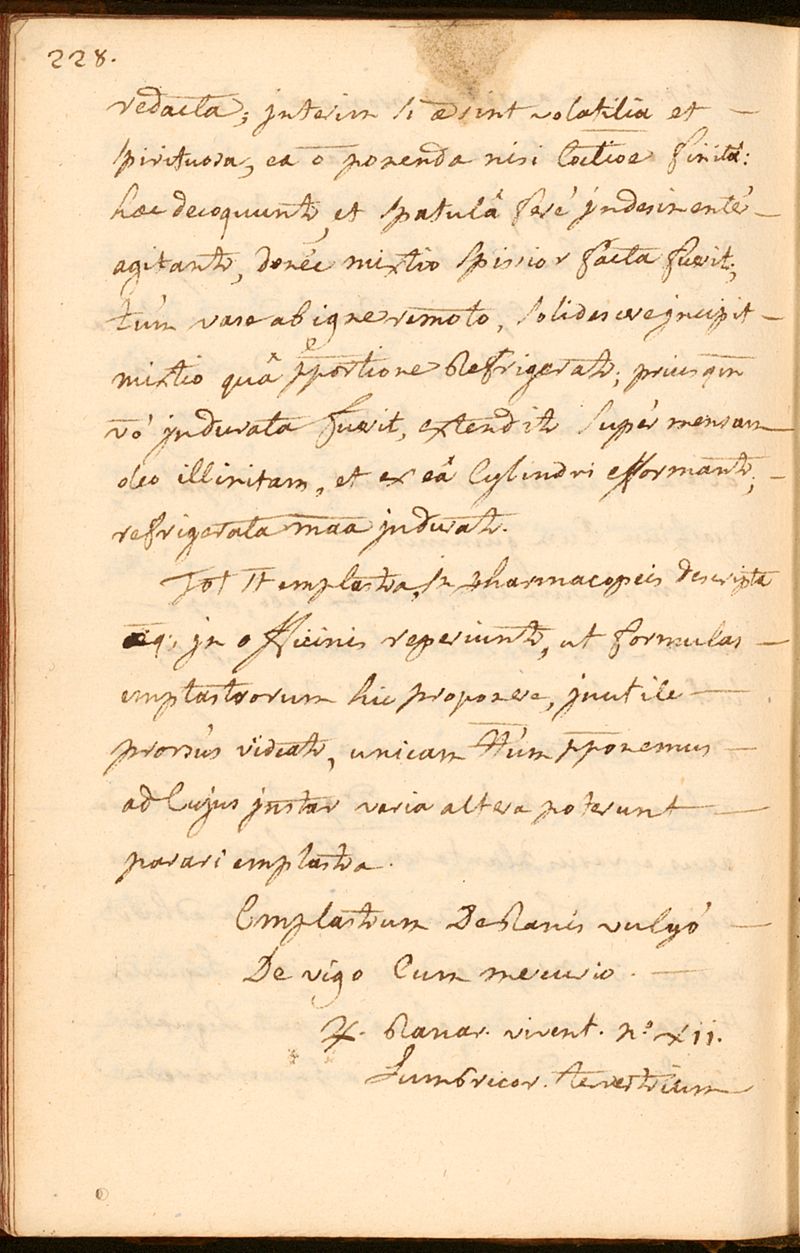 228.
redacta; jnterim si adsint volatilia et —
spirituosa, ea o ponenda nisi Coctioe finita:
hæc decoquunt, et spatulâ feré jndesinenté —
agitant, donéc mixtio spissior facta fuerit;
túm vase ab igne remoto, solidescere jncipit —
mixtio quâ pportione Refrigerat; priusqm
vó jndurata fuerit, extendit supér mensam —
oleo illinitam, et ex eâ Cylindri efformant; —
refrigerata maa jndurat.
Tot tt emplastra, jn pharmacopeis descripta
jn officinis reperiunt, ut formulas —
emplastrorum hic proponere, jnutile —
prorsús videat, unicam ttúm pponemus —
ad Cujus jnstar varia altera poterunt —
parari emplastra.
Emplastrum De Ranis vulgó —
De vigo Cum mercurio. —
♃. Ranar. vivent. n.° xii.
Lumbricor. terrestrium